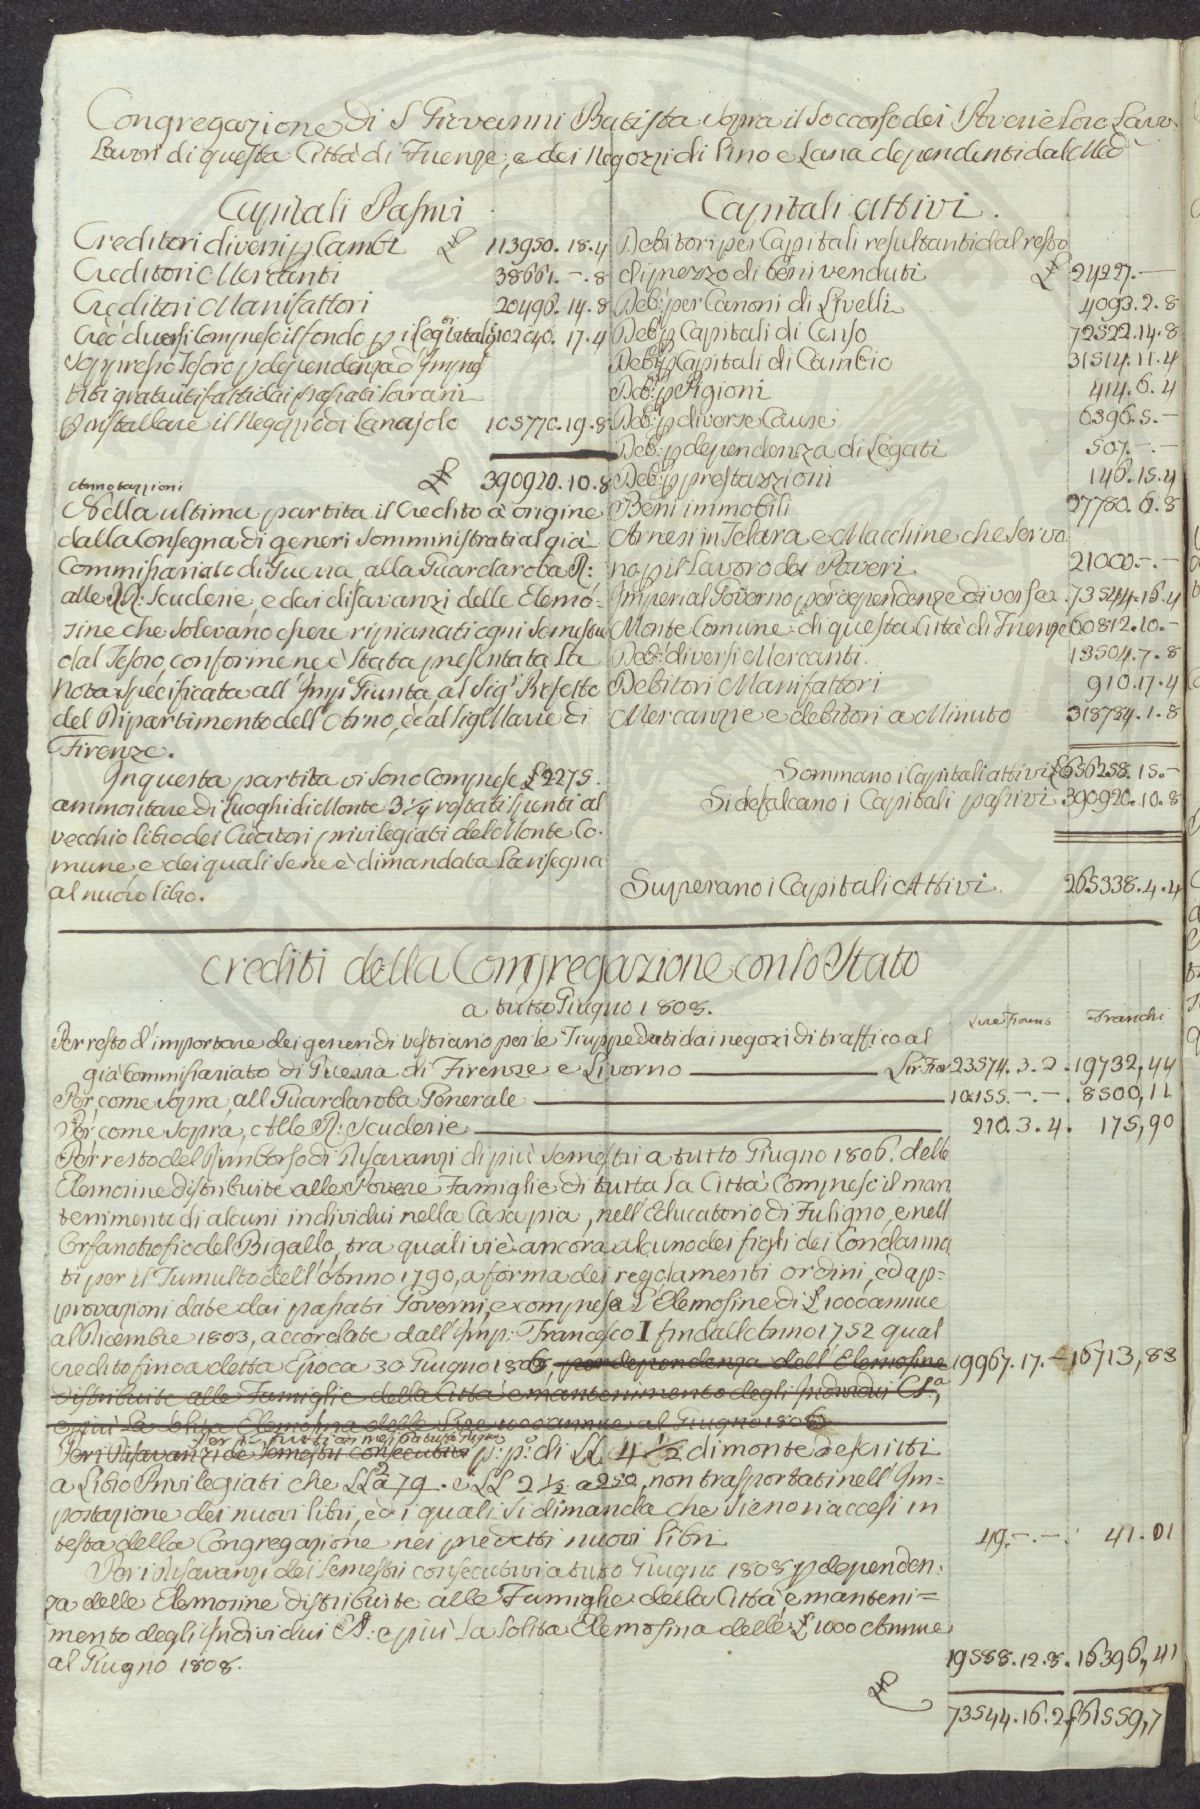 Congregazione di S Giovanni Batista sopra il Soccorso dei Poveri e Loro Lavo
Lavori di questa Città di Firenze, e dei Negozzi di Lino e Lana dependenti dal Med
Capitali Passivi
Creditori diversi p Cambi £ 113950.18.4
Creditori Mercanti 38661.-.8
Creditori Manifattori 20496.14.8
diversi Compreso il fondo p i 102040.17.4
Soppresso Tesoro p dependenza d'Impres
titi gratuiti fatti dai passati Sovrani
p installare il Negozio di Lanajolo 105770.19.8
£ 390920.10.8
Annotazzioni
Nella ultima partita il Credito à origine
dalla Consegna di generi Somministrati al già
Commissariato di Guerra, alla Guardaroba R:
alle RR: Scuderie, e dai disavanzi delle Elemo-
sine che solevano essere ripianati ogni Semestre
dal Tesoro, conforme ne è stata presentata la
Nota specificata all'Imp: Giunta, al Sig: Prefetto
del Dipartimento dell'Arno, ed al Sig: Mavie di
Firenze.
In questa partita vi sono Comprese £ 2275.
ammontare di Luoghi di Monte 3 1/4 restati spenti al
vecchio libro dei Creditori privilegiati del Monte Co-
mune, e dei quali se ne è dimandata la risegna
al nuovo libro.
Capitali Attivi.
Debitori per Capitali resultanti dal resto
di prezzo di beni venduti £ 24227.-
Deb: per Canoni di Livelli 4093.2.8
Deb: p Capitali di Censo 72522.14.8
Deb: p Capitali di Cambio 31514.11.4
Deb: p Pigioni 414.6.4
Deb: p diverse Cause 6396.5.-
Deb: p dependenza di Legati 507.-.-
Deb: p prestazzioni 146.15.4
Beni immobili 27780.6.8
Arnesi in Telara e Macchine che Servo
no p il Lavoro dei Poveri 21000.-.-
Imperial Governo per dependenze diverse 73544.16.4
Monte Comune di questa Città di Firenze 60812.10.-
Deb: diversi Mercanti 13504.7.8
Debitori Manifattori 910.17.4
Mercanzie e debitori a Minuto 318784.1.8
Sommano i Capitali attivi £ 656258.15.-
Si defalcano i Capitali passivi 390920.10.8
Superano i Capitali Attivi 265338.4.4
Crediti della Congregazione con lo Stato
a tutto Giugno 1808.
Lire Fiorne Franchi
Per resto d'importare dei generi di vestiario per le Truppe dati dai negozi di traffico al
già Commissariato di Guerra di Firenze e Livorno Lir: Fior 23574.3.2. 19732,44
Per come Sopra, all Guardaroba Generale 10155.-.-. 8500,11
Per come Sopra, Alle R: Scuderie 210.3.4. 175,90
Per resto del Rimborso di Disavanzi di più Semestri a tutto Giugno 1806. delle
Elemosine distribuite alle Povere Famiglie di tutta la Città Compresi il man
tenimento di alcuni individui nella Casa pia, nell'Educatorio di Fuligno, e nell
Orfanotrofio del Bigallo, tra quali vi è ancora alcuno dei figli dei Condanna
ti per il Tumulto dell'Anno 1790, a forma dei regolamenti ordini, ed ap=
provazioni date dai passati Governi, e compresa l'Elemosine di £ 1000 annue
al Dicembre 1803, accordate dall'Imp: Francesco I fin dall'Anno 1752 qual
credito fino a detta Epoca 30 Giugno 1806, per dependenza dell'Elemosine 19967.17.- 16713,83
distribuite alle Famiglie della Città e mantenimento degli Individui Ca,
e più la solita Elemosina delle Lire 1000 annue al Giugno 1806
Per i frutti di
Per i Disavanzi de Semestri Consecutivi p: p: di LL 4 1/2 di monte descritti
a Libro Privilegiati che LL 2 a 79. e LL 2 1/2 a 250, non trasportati nell'Im-
postazione dei nuovi libri, ed i quali si dimanda che sieno riaccesi in
testa della Congregazione nei predetti nuovi libri 49.-.-. 41.01
Per i Disavanzi dei Semestri consecutivi a tutto Giugno 1808 p dependen-
za delle Elemosine distribuite alle Famiglie della Città e manteni=
mento degli Individui e più la solita Elemosina delle £ 1000 Annue
al Giugno 1808. 19588.12.8. 16396,41
73544.16.2. f 61559,7